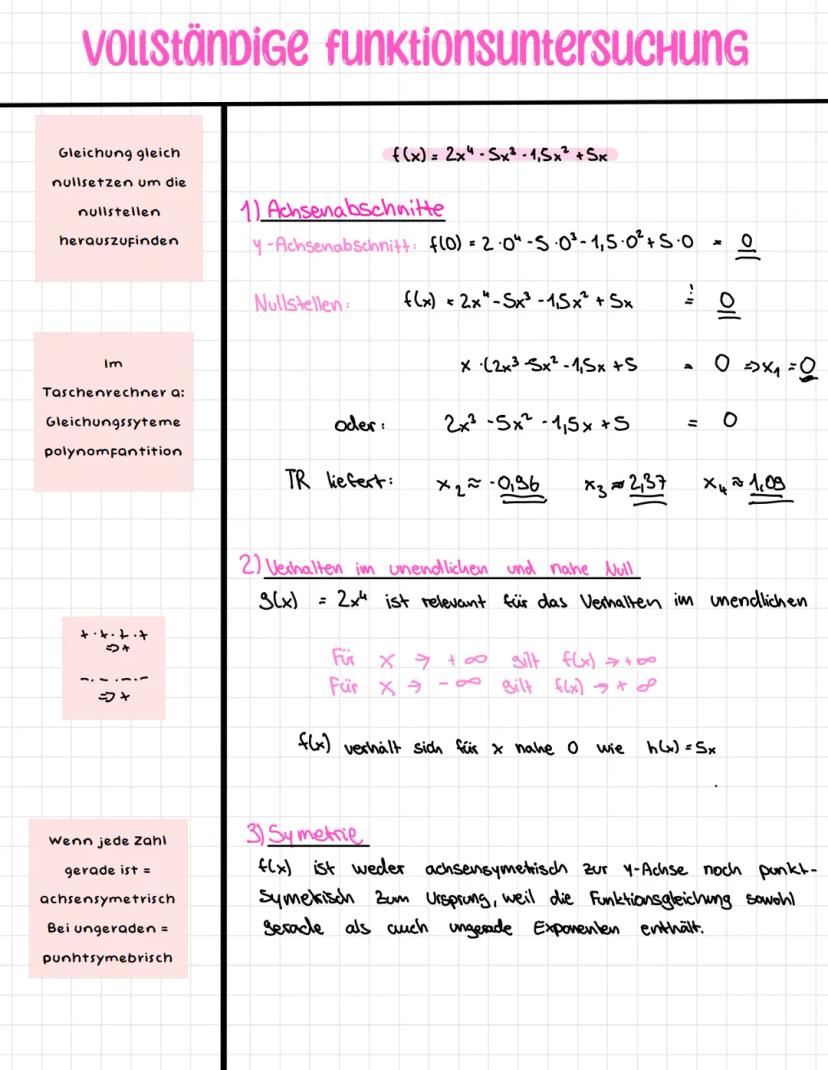 Vollständige Funktionsuntersuchung
Gleichung gleich
nullsetzen um die
nullstellen
herauszufinden
Im
Taschenrechner a:
Gleichungssyteme
polynomfantition
+·+·+·+
=> +
-·-·-·-
=> +
Wenn jede Zahl
gerade ist =
achsensymetrisch
Bei ungeraden =
punhtsymebrisch
f(x) = 2x⁴ - 5x³ - 1,5x² + 5x
1) Achsenabschnitte
y-Achsenabschnitt: f(0) = 2·0⁴ - 5·0³ - 1,5·0² + 5·0 = 0
Nullstellen: f(x) = 2x⁴ - 5x³ - 1,5x² + 5x != 0
x·(2x³ - 5x² - 1,5x + 5 = 0 => x₁ = 0
oder: 2x³ - 5x² - 1,5x + 5 = 0
TR liefert: x₂ ≈ -0,96 x₃ ≈ 2,37 x₄ ≈ 1,09
2) Verhalten im unendlichen und nahe Null
g(x) = 2x⁴ ist relevant für das Verhalten im unendlichen
Für x → +∞ gilt f(x) → +∞
Für x → -∞ gilt f(x) → +∞
f(x) verhält sich für x nahe 0 wie h(x) = 5x
3) Symetrie
f(x) ist weder achsensymetrisch zur y-Achse noch punkt-
symetrisch zum Ursprung, weil die Funktionsgleichung sowohl
gerade als auch ungerade Exponenten enthält.